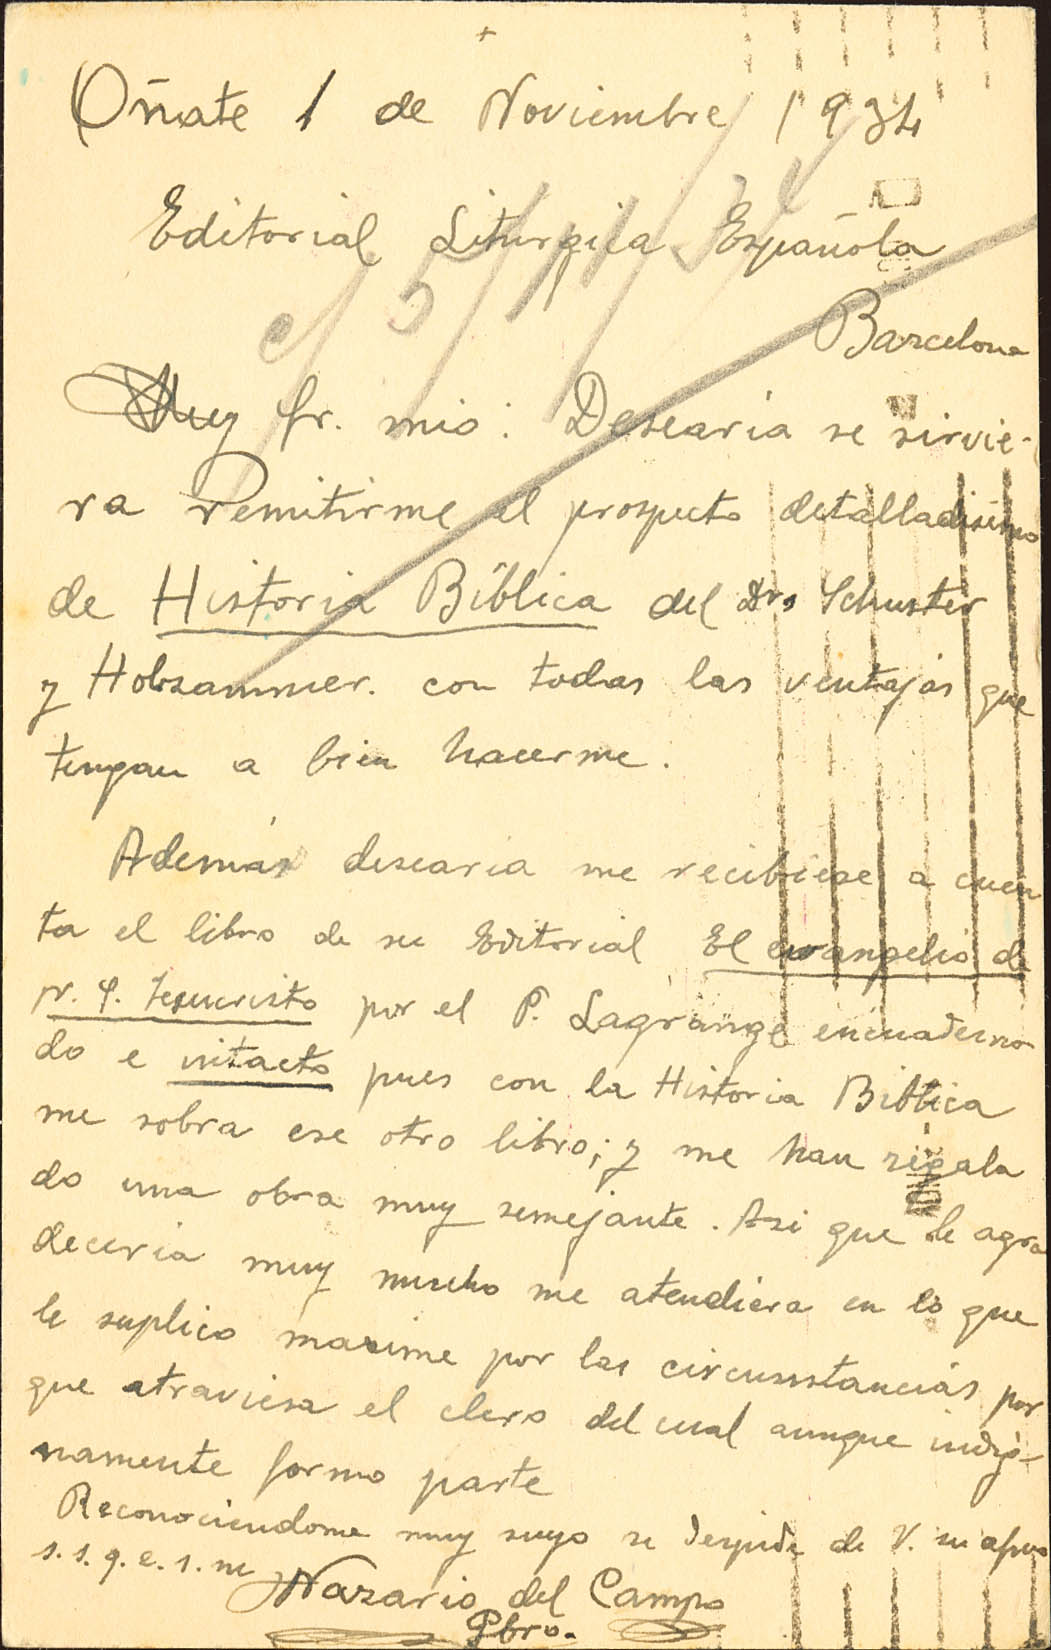 +
Oñate 1 de Noviembre 1934
Editorial Liturgica Española
Barcelona
c/ 5/11/34
Muy Sr. mio: Desearia se sirvie-
ra remitirme el prospecto detalladisimo
de Historia Bíblica del Dr. Schuster
y Holzammer. con todas las ventajas que
tengan a bien hacerme.
Además desearia me recibiese a cuen
ta el libro de su Editorial El evangelio de
N. S. Jesucristo por el P. Lagrange encuaderna
do e intacto pues con la Historia Biblica
me sobra ese otro libro; y me han regala
do una obra muy semejante. Asi que le agra
deceria muy mucho me atendiera en lo que
le suplico maxime por las circunstancias por
que atraviesa el clero del cual aunque indig-
namente formo parte
Reconociendome muy suyo se despide de V. su afmo
s. s. q. e. s. m
Nazario del Campo
Pbro.